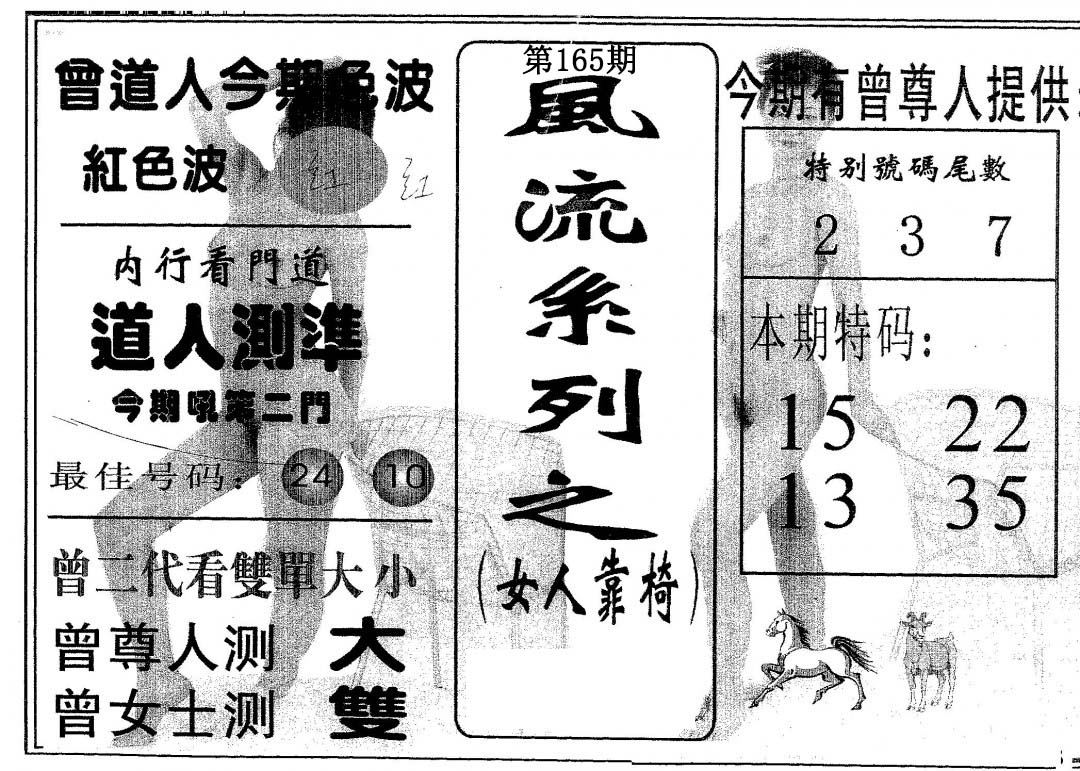 曾道人今期色波
紅色波 红 红
内行看門道
道人測準
今期吼第二門
最佳号码: 24 10
曾二代看雙單大小
曾尊人测 大
曾女士测 雙
第165期
風流系列之
(女人靠椅)
今期有曾尊人提供:
特别號碼尾數
2 3 7
本期特码:
15 22
13 35